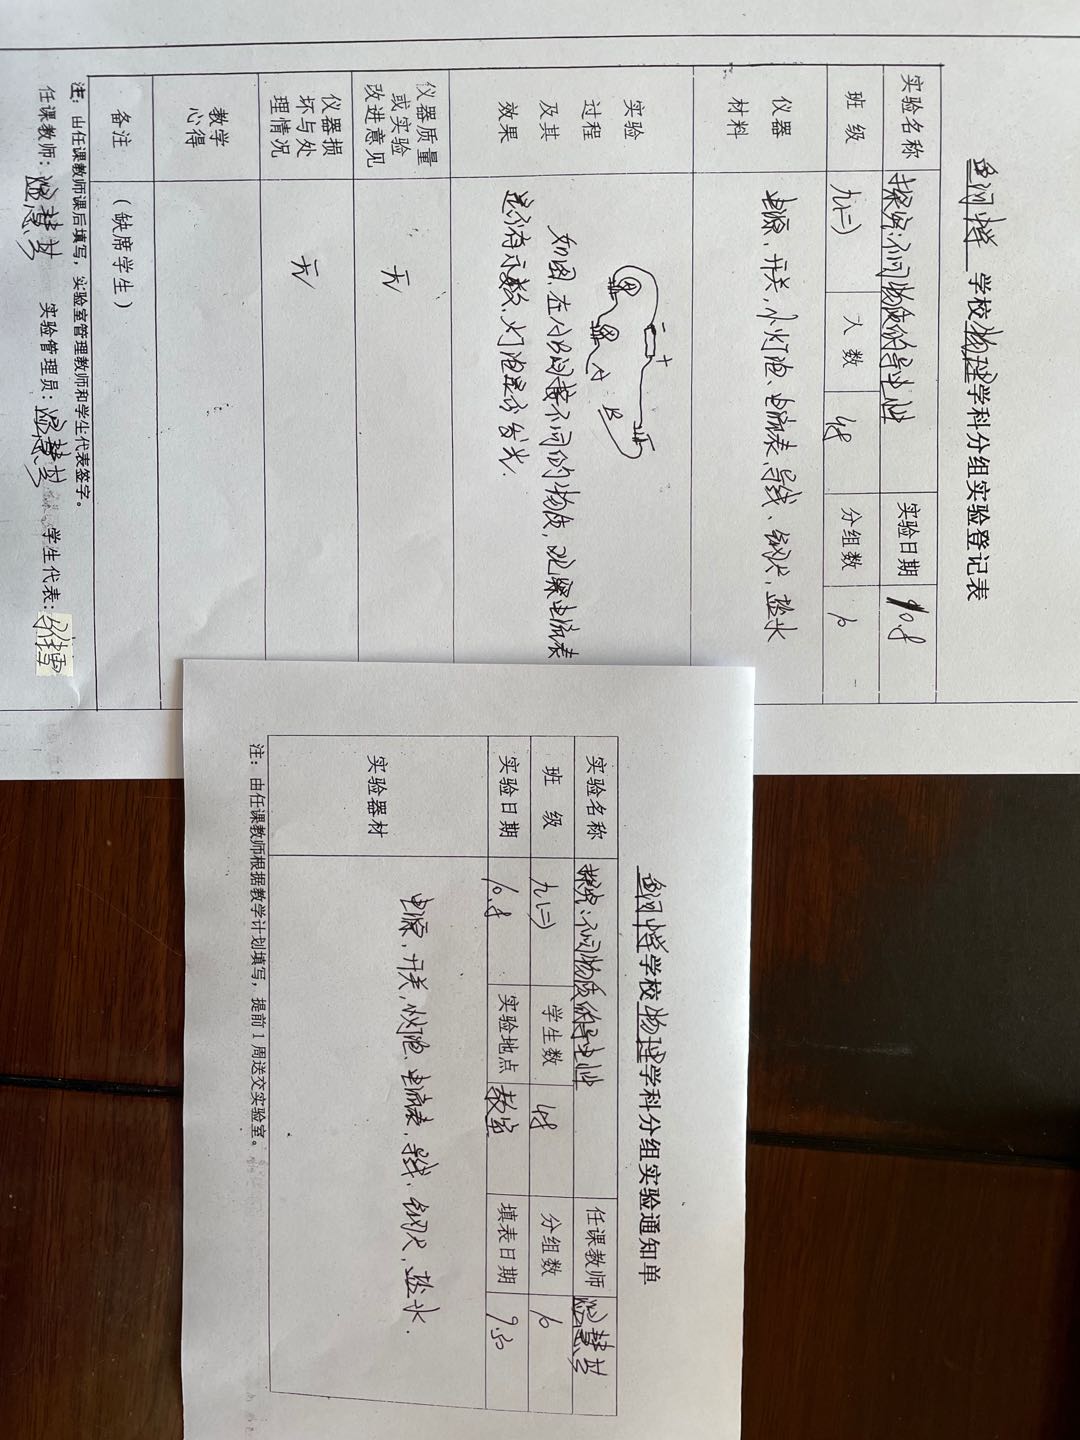 学校物理学科分组实验登记表
实验名称 探究:不同物质的导电性 实验日期 10.8
班 级 九(二) 人 数 48 分组数 10
仪器 材料 电源、开关、小灯泡、电流表、导线、铜片、盐水
实验 过程 及其 效果
- +
A
A B
如图,在AB间接不同的物质,观察电流表
是否有示数,灯泡是否发光.
仪器质量 或实验 改进意见 无
仪器损 坏与处 理情况 无
教学 心得
备注 (缺席学生)
注:由任课教师课后填写,实验室管理教师和学生代表签字。
任课教师: 实验管理员: 学生代表:
学校物理学科分组实验通知单
实验名称 探究:不同物质的导电性 任课教师
班 级 九(二) 学生数 48 分组数 10
实验日期 10.8 实验地点 教室 填表日期 9.30
实验器材 电源,开关,小灯泡、电流表,导线,铜片,盐水.
注:由任课教师根据教学计划填写,提前1周送交实验室。